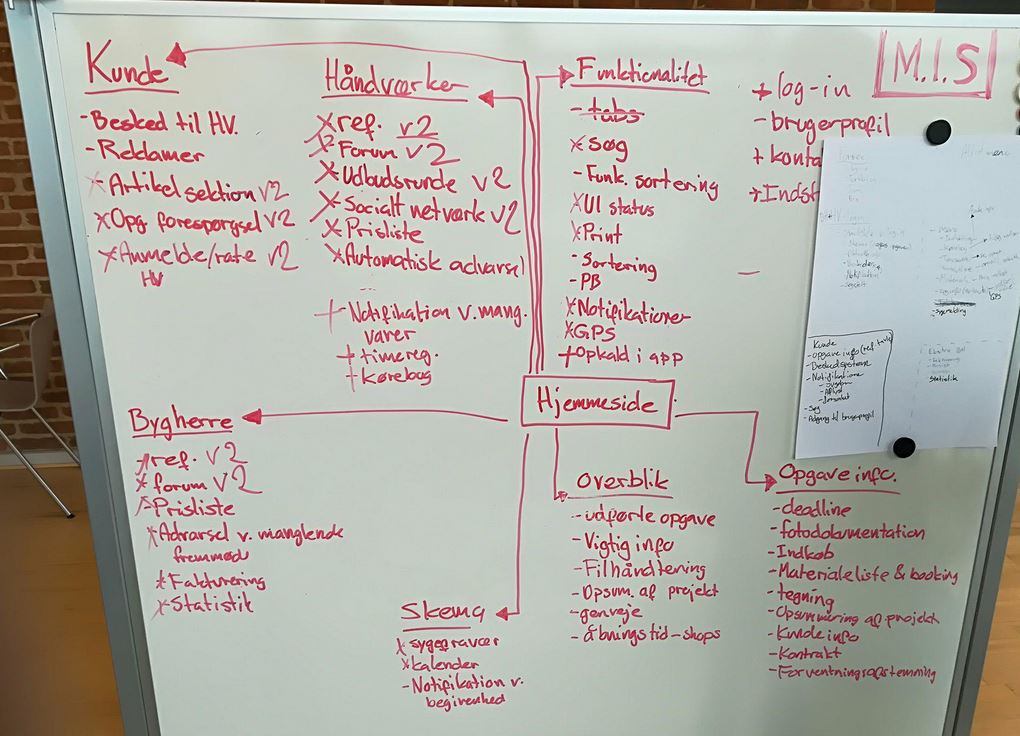 M.I.S
Kunde
- Besked til HV.
- Reklamer
x Artikel sektion V2
x Opg. forespørgsel V2
x Anmelde/rate V2
HV
Håndværker
x ref. V2
x Forum V2
x Udbudsrunde V2
x Socialt netværk V2
x Prisliste
x Automatisk advarsel
+ Notifikation v. mang.
varer
+ timereg.
+ kørebog
Funktionalitet
- tabs
x søg
- Funk. sortering
x UI status
x Print
- Sortering
- PB
x Notifikationer
x GPS
+ Opkald i app
+ log-in
- brugerprofil
+ konta
+ Indst
Kunde
- Opgave info
- Notifikatione
- Søg
Statistik
Hjemmeside
Bygherre
x ref. V2
x forum V2
x Prisliste
x Advarsel v. manglende
fremmød
x Fakturering
x Statistik
Skema
x sygefravær
x kalender
- Notifikation v.
begivenhed
Overblik
- udførte opgave
- Vigtig info
- Filhåndtering
- Opsum. af projekt
- genveje
- åbningstid-shops
Opgave info.
- deadline
- fotodokumentation
- Indkøb
- Materialeliste & booking
- tegning
- Opsummering af projekt
- Kundeinfo
- Kontrakt
- Forventningsafstemning